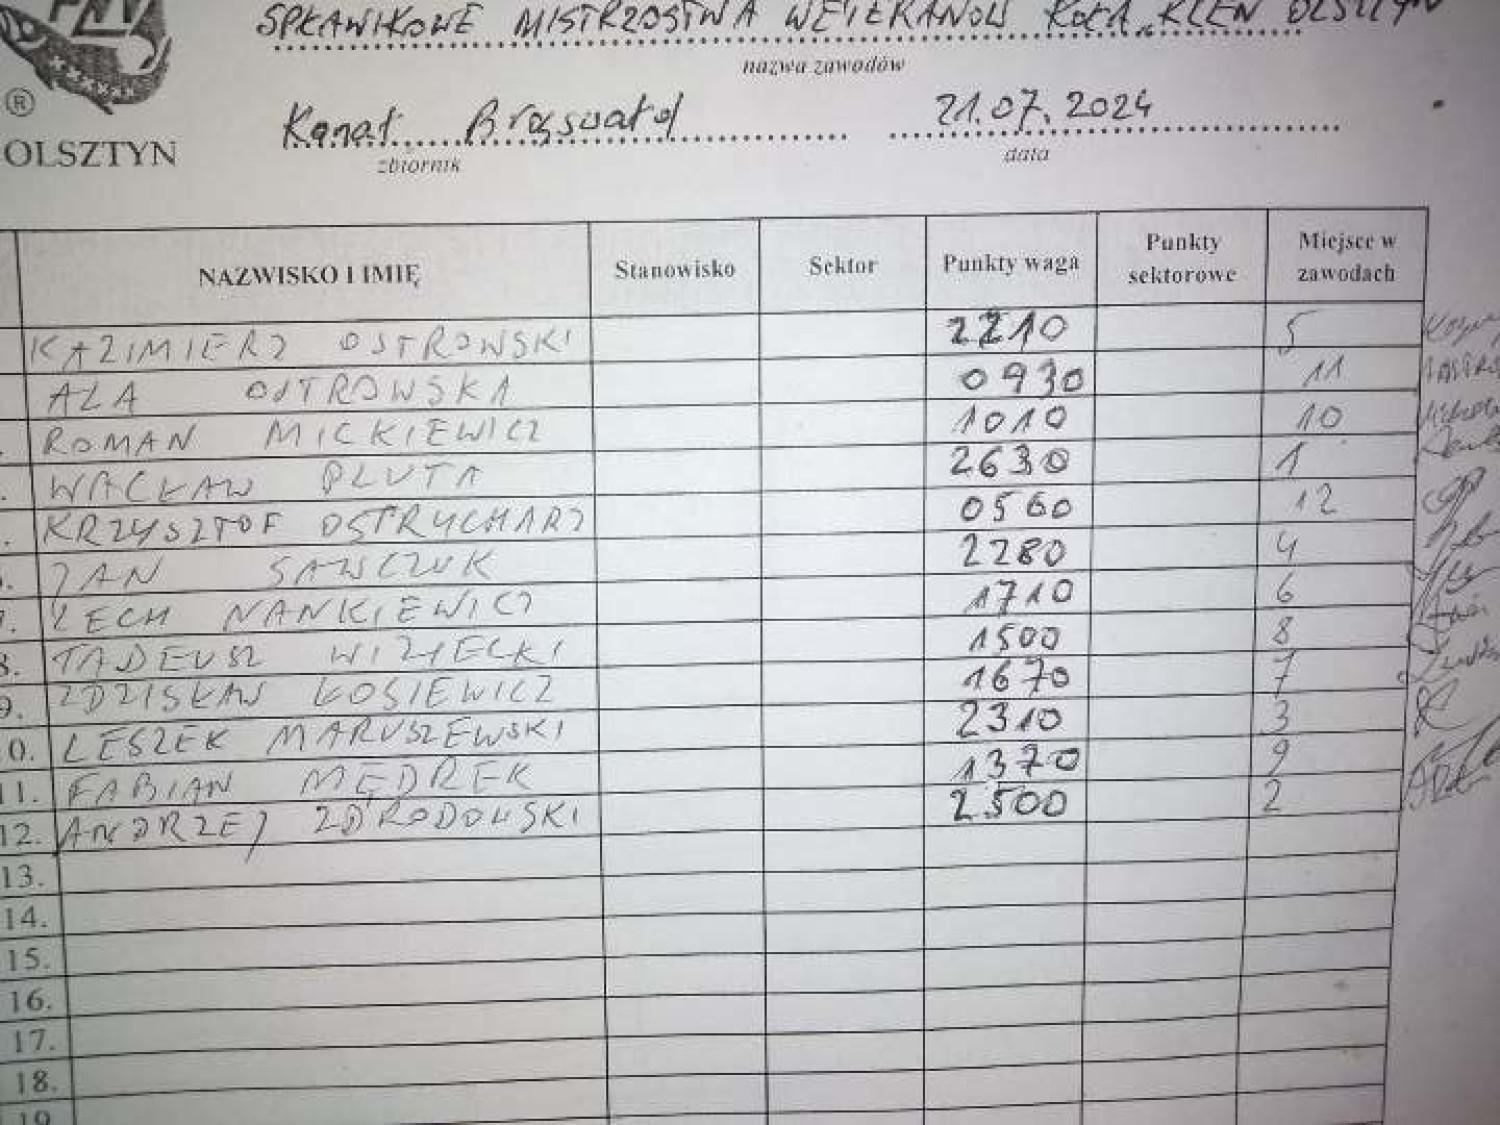 SPŁAWIKOWE MISTRZOSTWA WETERANÓW KOŁA "KLEŃ OLSZTYN
nazwa zawodów
Kanał 21.07.2024
zbiornik data
®
OLSZTYN
NAZWISKO I IMIĘ Stanowisko Sektor Punkty waga Punkty sektorowe Miejsce w zawodach
KAZIMIERZ OSTROWSKI 2210 5
ALA OSTROWSKA 0930 11
ROMAN MICKIEWICZ 1010 10
WACŁAW PLUTA 2630 1
KRZYSZTOF OSTRYCHARZ 0560 12
JAN SAWCZUK 2280 4
7. LECH NANKIEWICZ 1710 6
8. TADEUSZ WIZIECKI 1500 8
9. ZDZISŁAW ŁOSIEWICZ 1670 7
10. LESZEK MARUSZEWSKI 2310 3
11. FABIAN MĘDREK 1370 9
12. ANDRZEJ ZDRODOWSKI 2500 2
13.
14.
15.
16.
17.
18.
19